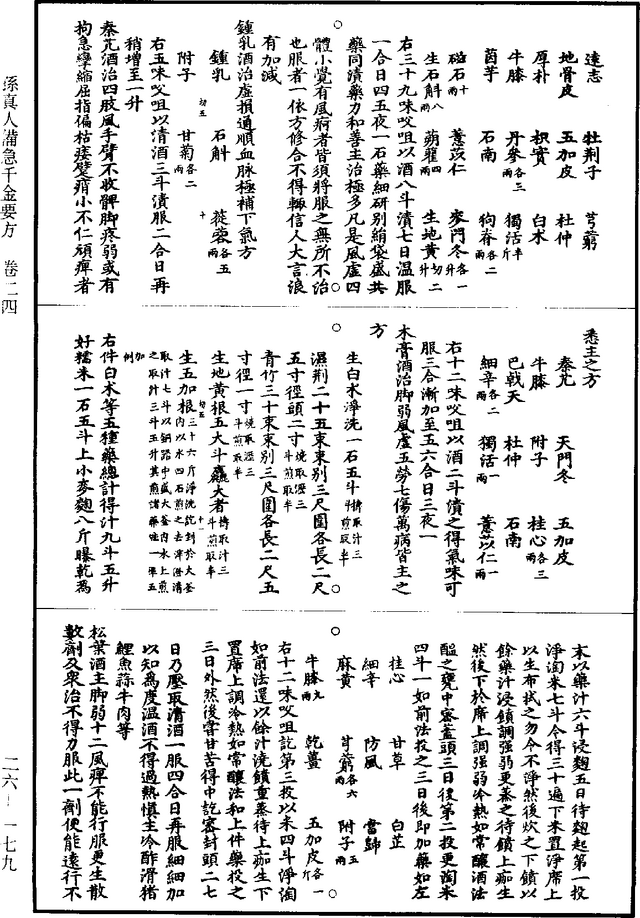 孫真人備急千金要方 卷二四
遠志 牡荊子 芎藭
地骨皮 五加皮 杜仲
厚朴 枳實 白朮
牛膝 丹參各三兩 獨活半斤
茵芋 石南 狗脊各二兩
磁石十兩 薏苡仁 麥門冬各一升
生石斛八兩 蒴藋四兩 生地黃切二升
右三十九味㕮咀以酒八斗漬七日溫服
一合日四五夜一石藥細研別絹袋盛共
藥同漬藥力和善主治極多凡是風虛四
體小覺有風痾者皆須將服之無所不治
也服者一依方修合不得輒信人大言浪
有加減
鍾乳酒治虛損通順血脉極補下氣方
鍾乳 石斛 蓯蓉各五
附子 甘菊各二
右五味㕮咀以清酒三斗漬服二合日再
稍增至一升
秦艽酒治四肢風手臂不收髀脚疼弱或有
拘急攣縮屈指偏枯痿躄痟小不仁頑痺者
悉主之方
秦艽 天門冬 五加皮
牛膝 附子 桂心各三兩
巴戟天 杜仲 石南
細辛各二兩 獨活一兩 薏苡仁一兩
右十二味㕮咀以酒二斗漬之得氣味可
服三合漸加至五六合日三夜一
朮膏酒治脚弱風虛五勞七傷萬病皆主之
方
生白朮淨洗一石五斗擣取汁三斗煎取半
濕荊二十五束束別三尺圍各長二尺
五寸徑頭二寸燒取瀝三斗煎取半
青竹三十束束別三尺圍各長二尺五
寸徑一寸燒取瀝三斗煎取半
生地黃根五大斗麤大者擣取汁三斗煎取半
生五加根三十六斤淨洗訖剉於大釜內以水四石煎之去滓澄清
取汁七斗以銅器中盛大釜內水上煎之取汁三斗五升其煎諸藥法一準五加例
右件白朮等五種藥總計得汁九斗五升
好糯米一石五斗上小麥麴八斤曝乾為
末以藥汁六斗浸麴五日待麴起第一投
淨淘米七斗令得三十遍下米置淨席上
以生布拭之勿令不淨然後炊之下饙以
餘藥汁浸饙調強弱更蒸之待饙上痂生
然後下於席上調強弱冷熱如常釀酒法
醞之甕中密蓋頭三日後第二投更淘米
四斗一如前法投之三日後即加藥如左
桂心 甘草 白芷
細辛 防風 當歸
麻黃 芎藭各六兩 附子五兩
牛膝九兩 乾薑 五加皮各一斤
右十二味㕮咀訖第三投以米四斗淨淘
如前法還以餘汁澆饙重蒸待上痂生下
置席上調冷熱如常釀法和上件藥投之
三日外然後嘗甘苦得中訖密封頭二七
日乃壓取清酒一服四合日再服細細加
以知為度溫酒不得過熱慎生冷酢滑猪
鯉魚蒜牛肉等
松葉酒主脚弱十二風痺不能行服更生散
數劑及衆治不得力服此一劑便能遠行不
二六—一七九